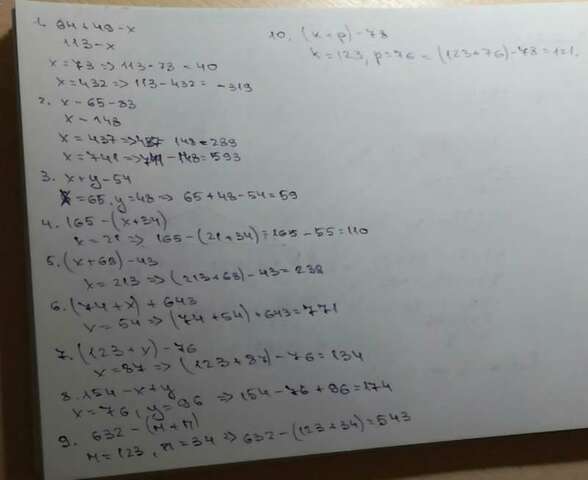 1. 64+49-x
113-x
x=73 => 113-73=40
x=432 => 113-432= -319
2. x-65-83
x-148
x=437 => 437 148=289
x=741 => 741-148=593
3. x+y-54
x=65, y=48 => 65+48-54=59
4. 165-(x+34)
x=21 => 165-(21+34)=165-55=110
5. (x+68)-43
x=213 => (213+68)-43=238
6. (74+x)+643
x=54 => (74+54)+643=771
7. (123+x)-76
x=87 => (123+87)-76=134
8. 154-x+y
x=76, y=96 => 154-76+96=174
9. 632-(m+n)
m=123, n=34 => 632-(123+34)=543
10. (k+p)-78
k=123, p=76 = (123+76)-78=121.